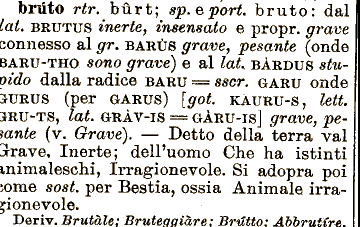 brúto rtr. bûrt; sp. e port. bruto: dal
lat. BRUTUS inerte, insensato e propr. grave
connesso al gr. BARÙS grave, pesante (onde
BARU-THO sono grave) e al lat. BÁRDUS stu-
pido dalla radice BARU = sscr. GARU onde
GURUS (per GARUS) [got. KAURU-S, lett.
GRU-TS, lat. GRÀV-IS = GÀRU-IS] grave, pe-
sante (v. Grave). — Detto della terra val
Grave, Inerte; dell'uomo Che ha istinti
animaleschi, Irragionevole. Si adopra poi
come sost. per Bestia, ossia Animale irra-
gionevole.
Deriv. Brutàle; Bruteggiàre; Brútto; Abbrutíre.